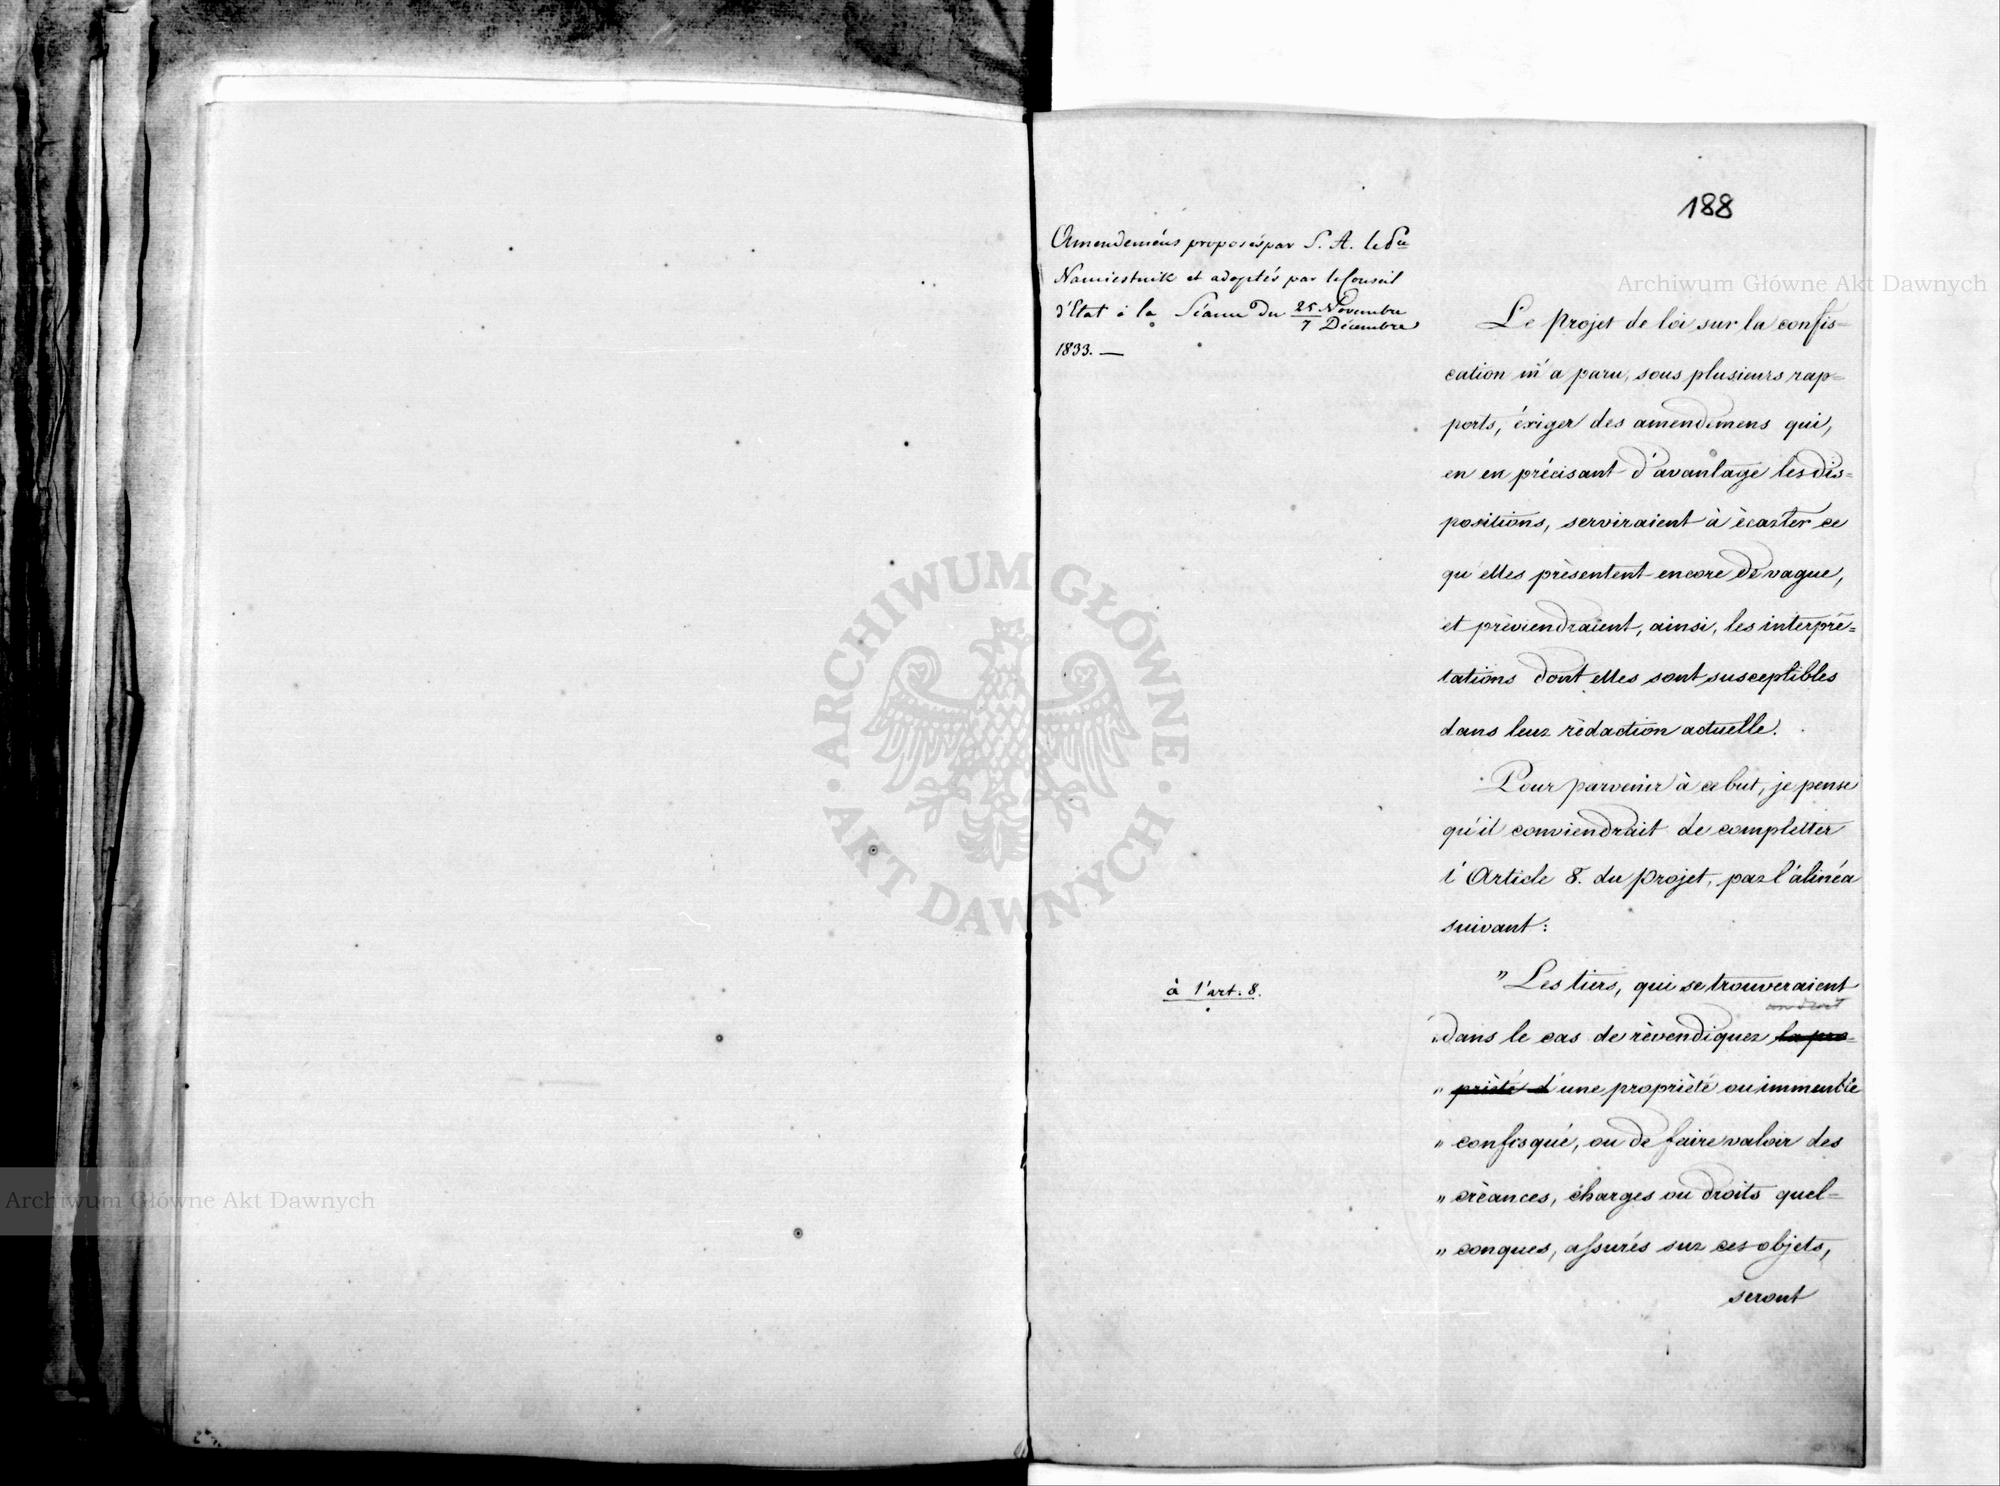 188
Amendemens proposés par S. A. le Pce
Namiestnik et adoptés par le Conseil
d'Etat à la Séance du 25 Novembre
7 Décembre
1833. —
Le Projet de loi sur la confis=
cation m'a paru, sous plusieurs rap=
ports, éxiger des amendemens qui,
en en précisant d'avantage les dis=
positions, serviraient à écarter ce
qu'elles présentent encore de vague,
et préviendraient, ainsi, les interpré=
tations dont elles sont susceptibles
dans leur rédaction actuelle.
Pour parvenir à ce but, je pense
qu'il conviendrait de completter
l'Article 8. du Projet, par l'alinéa
suivant:
à l'art. 8.
„ Les tiers, qui se trouveraient
„ dans le cas de révendiquer la pro=
„ priété d'une propriété ou immeuble
„ confisqué, ou de faire valoir des
„ créances, charges ou droits quel=
„ conques, assurés sur ces objets,
seront
Archiwum Główne Akt Dawnych
Archiwum Główne Akt Dawnych
ARCHIWUM GŁÓWNE AKT DAWNYCH